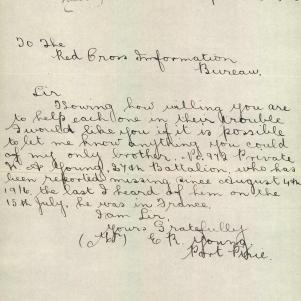 To The
Red Cross Information
Bureau.
Sir
Knowing how willing you are
to help each one in their trouble
I would like you if it is possible
to let me know anything you could
of my only brother. No. 972 Private
W. A Young 27th Battalion, who has
been reported missing since August 4th
1916, the last I heard of him on the
15th July, he was in France.
I am Sir,
Yours Gratefully
E. R. Young.
Port Pirie.